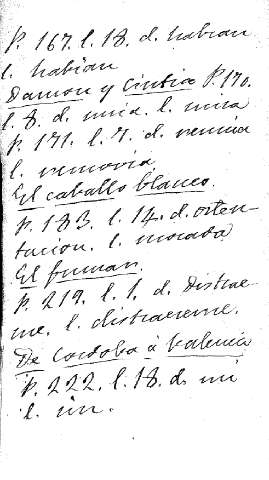 P. 167. l. 18. d. habran
l. habian
Damon y Cintia P. 170.
l. 8. d. mia. l. mira
P. 171. l. 7. d. venia
l. removia
El caballo blanco.
P. 183. l. 14. d. osten-
tacion. l. morada
El fumar.
P. 219. l. 1. d. Distrae
me. l. distraereme.
De Cordoba á Valencia
P. 222. l. 18. d. mi
l. un.